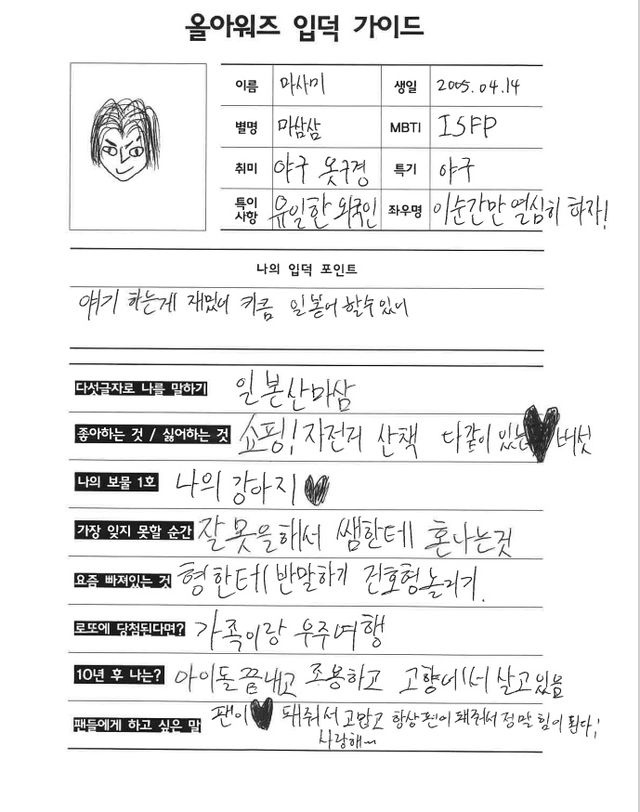 올아워즈 입덕 가이드
이름 마사미 생일 2005.04.14
별명 마삼삼 MBTI ISFP
취미 야구 옷구경 특기 야구
특이사항 유일한 외국인 좌우명 이순간만 열심히 하자!
나의 입덕 포인트
얘기 하는게 재밌어 키큼 일본어 할수있어
다섯글자로 나를 말하기 일본산마삼
좋아하는 것 / 싫어하는 것 쇼핑! 자전거 산책 다같이 있는 버섯
나의 보물 1호 나의 강아지 ♥
가장 잊지 못할 순간 잘못을해서 쌤한테 혼나는것
요즘 빠져있는 것 형한테 반말하기 건호형놀리기.
로또에 당첨된다면? 가족이랑 우주여행
10년 후 나는? 아이돌끝내고 조용하고 고향에서 살고있음
팬들에게 하고 싶은 말 팬이 ♥ 돼줘서 고맙고 항상 편이 돼줘서 정말 힘이 된다!
사랑해~